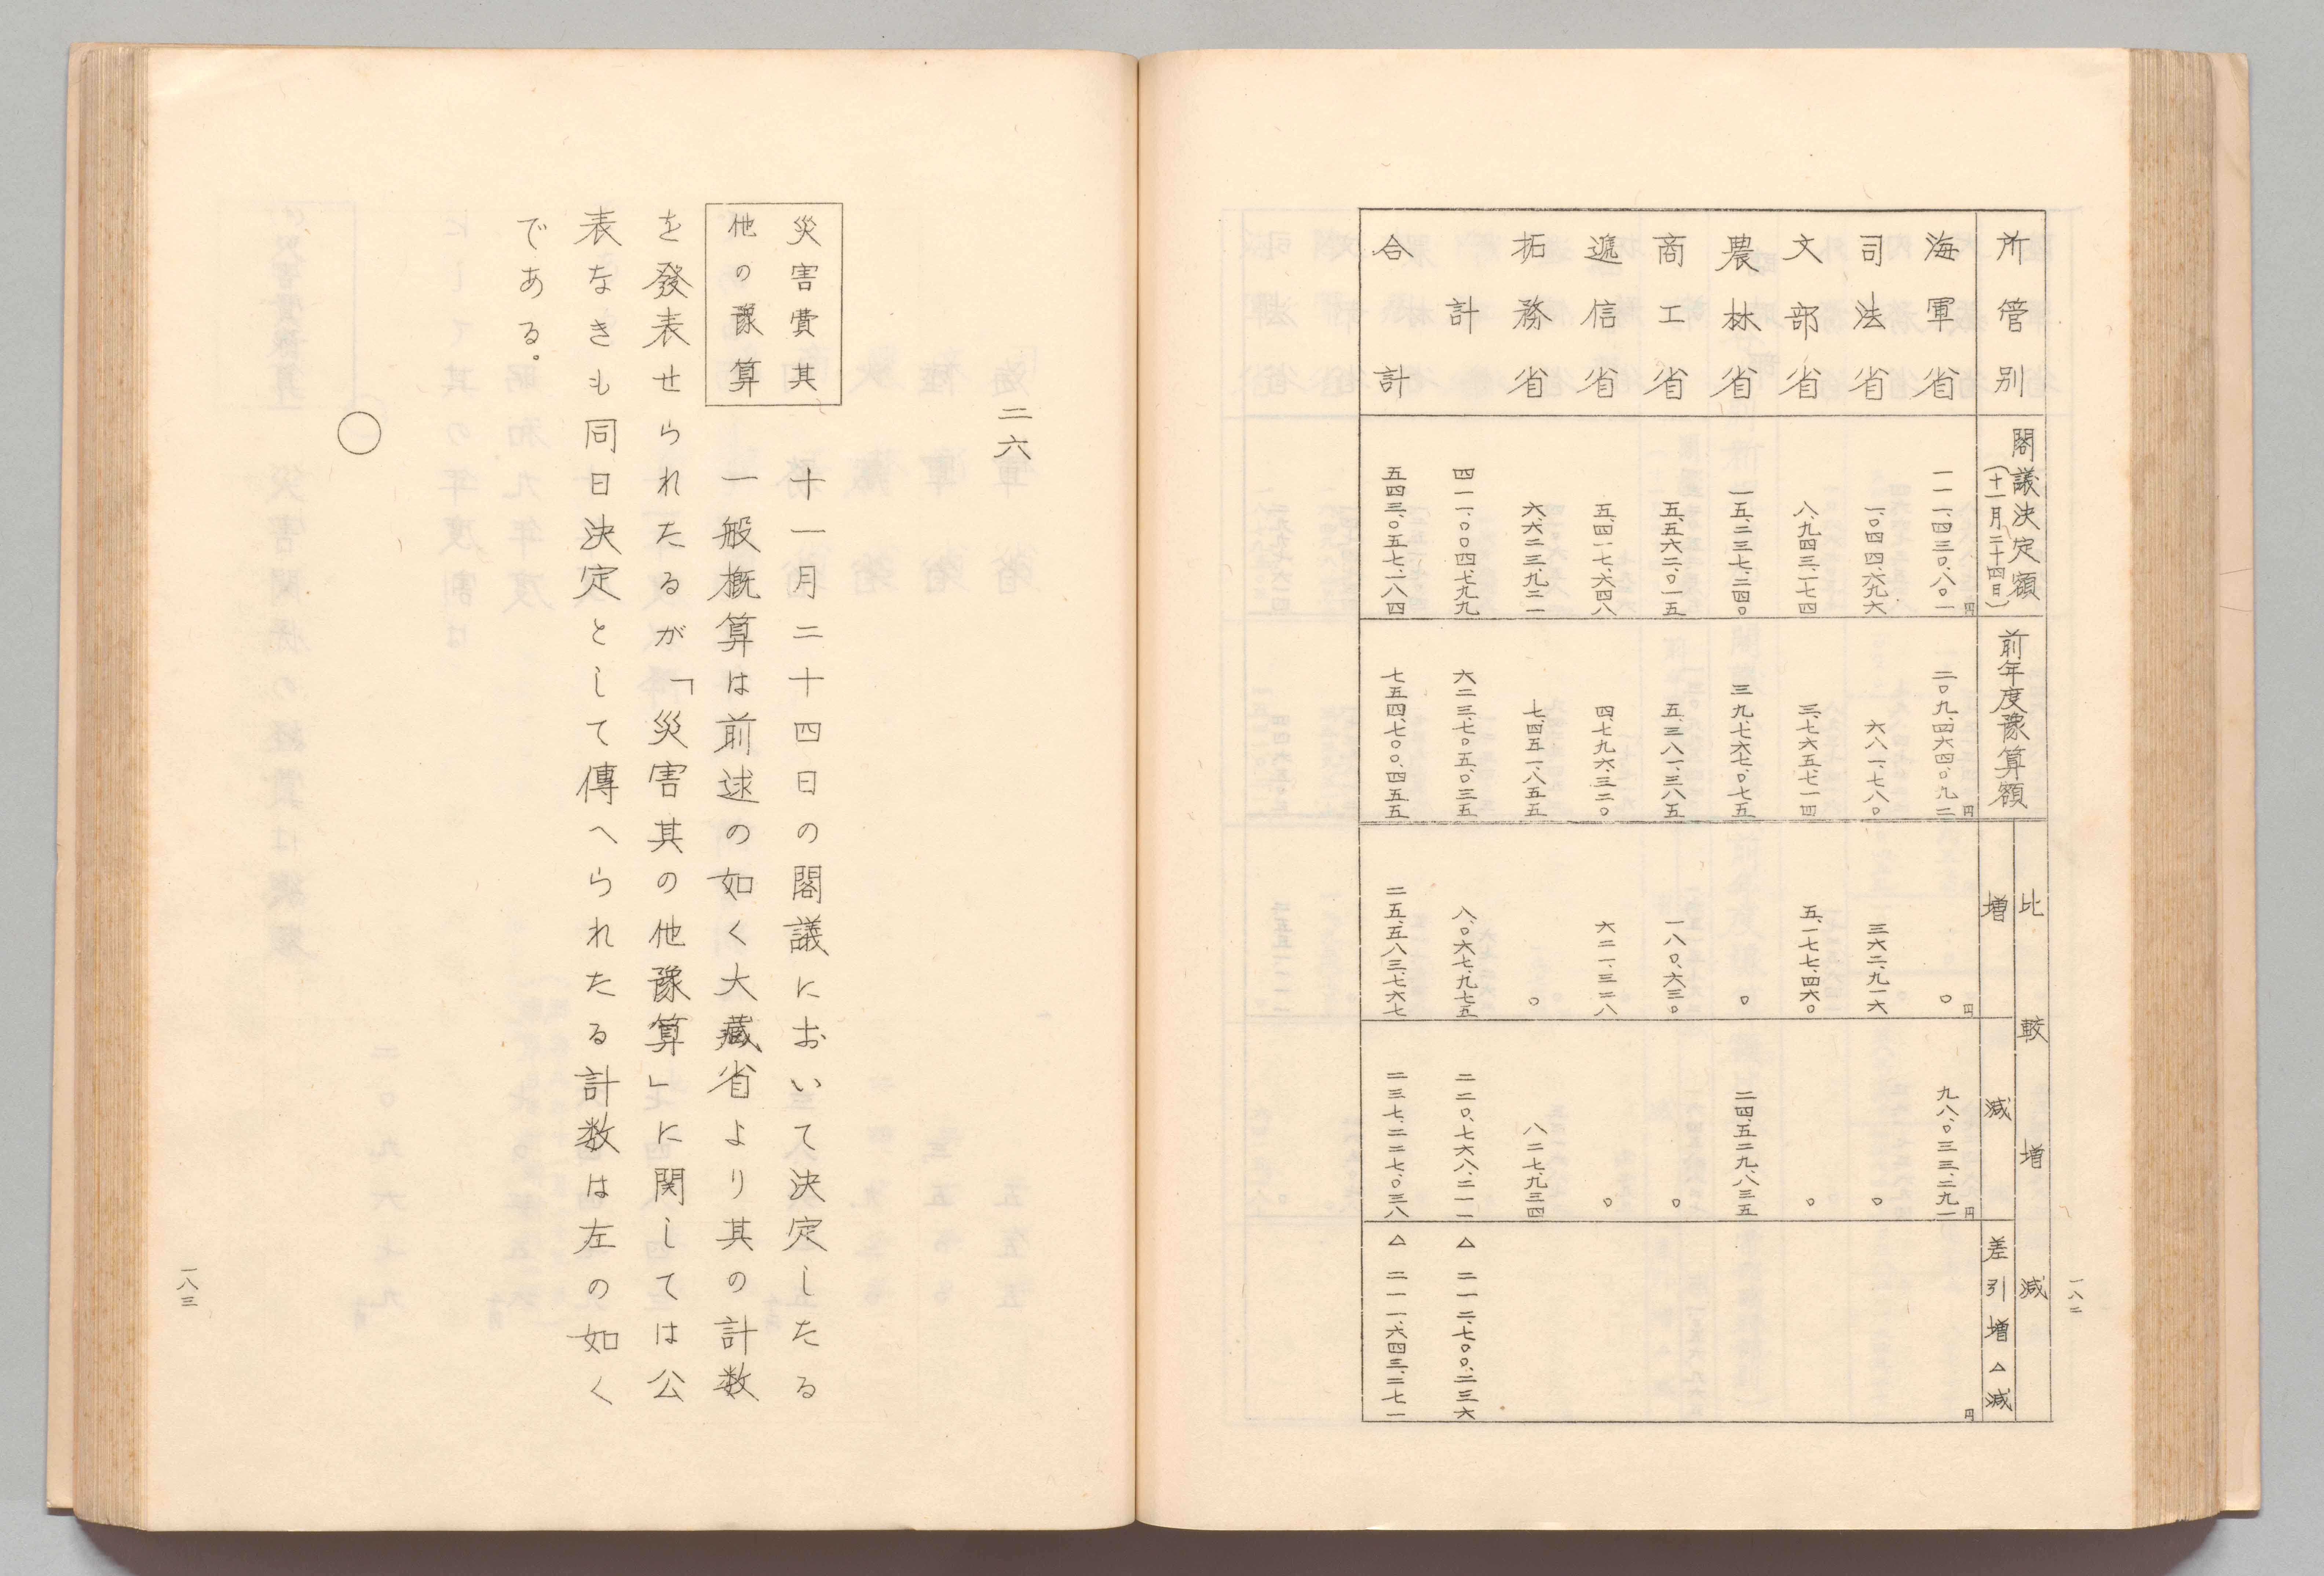 一八二
所管別
閣議決定額
（十一月二十四日）
前年度豫算額
比較増減
増
減
差引増△減
海軍省 一一一、四三〇、八〇一円 二〇九、四六四、〇九二円 〇円 九八、〇三三、二九一円 円
司法省 一、〇四四、六九六 六八一、七八〇 三六二、九一六 〇
文部省 八、九四三、一七四 三、七六五、七一四 五、一七七、四六〇 〇
農林省 一五、二三七、二四〇 三九、七六七、〇七五 〇 二四、五二九、八三五
商工省 五、五六二、〇一五 五、三八一、三八五 一八〇、六三〇 〇
遞信省 五、四一七、六四八 四、七九六、三二〇 六二一、三二八 〇
拓務省 六、六二三、九二一 七、四五一、八五五 〇 八二七、九三四
計 四一一、〇〇四、七九九 六二三、七〇五、〇三五 八、〇六七、九七五 二二〇、七六八、二一一 △二一二、七〇〇、二三六
合計 五四三、〇五七、一八四 七五四、七〇〇、四五五 二五、五八三、七六七 二三七、二二七、〇三八 △二一一、六四三、二七一
二六
災害費其
他の豫算
十一月二十四日の閣議において決定したる
一般概算は前述の如く大藏省より其の計数
を發表せられたるが「災害其の他豫算」に関しては公
表なきも同日決定として傳へられたる計数は左の如く
である。
〇
一八三